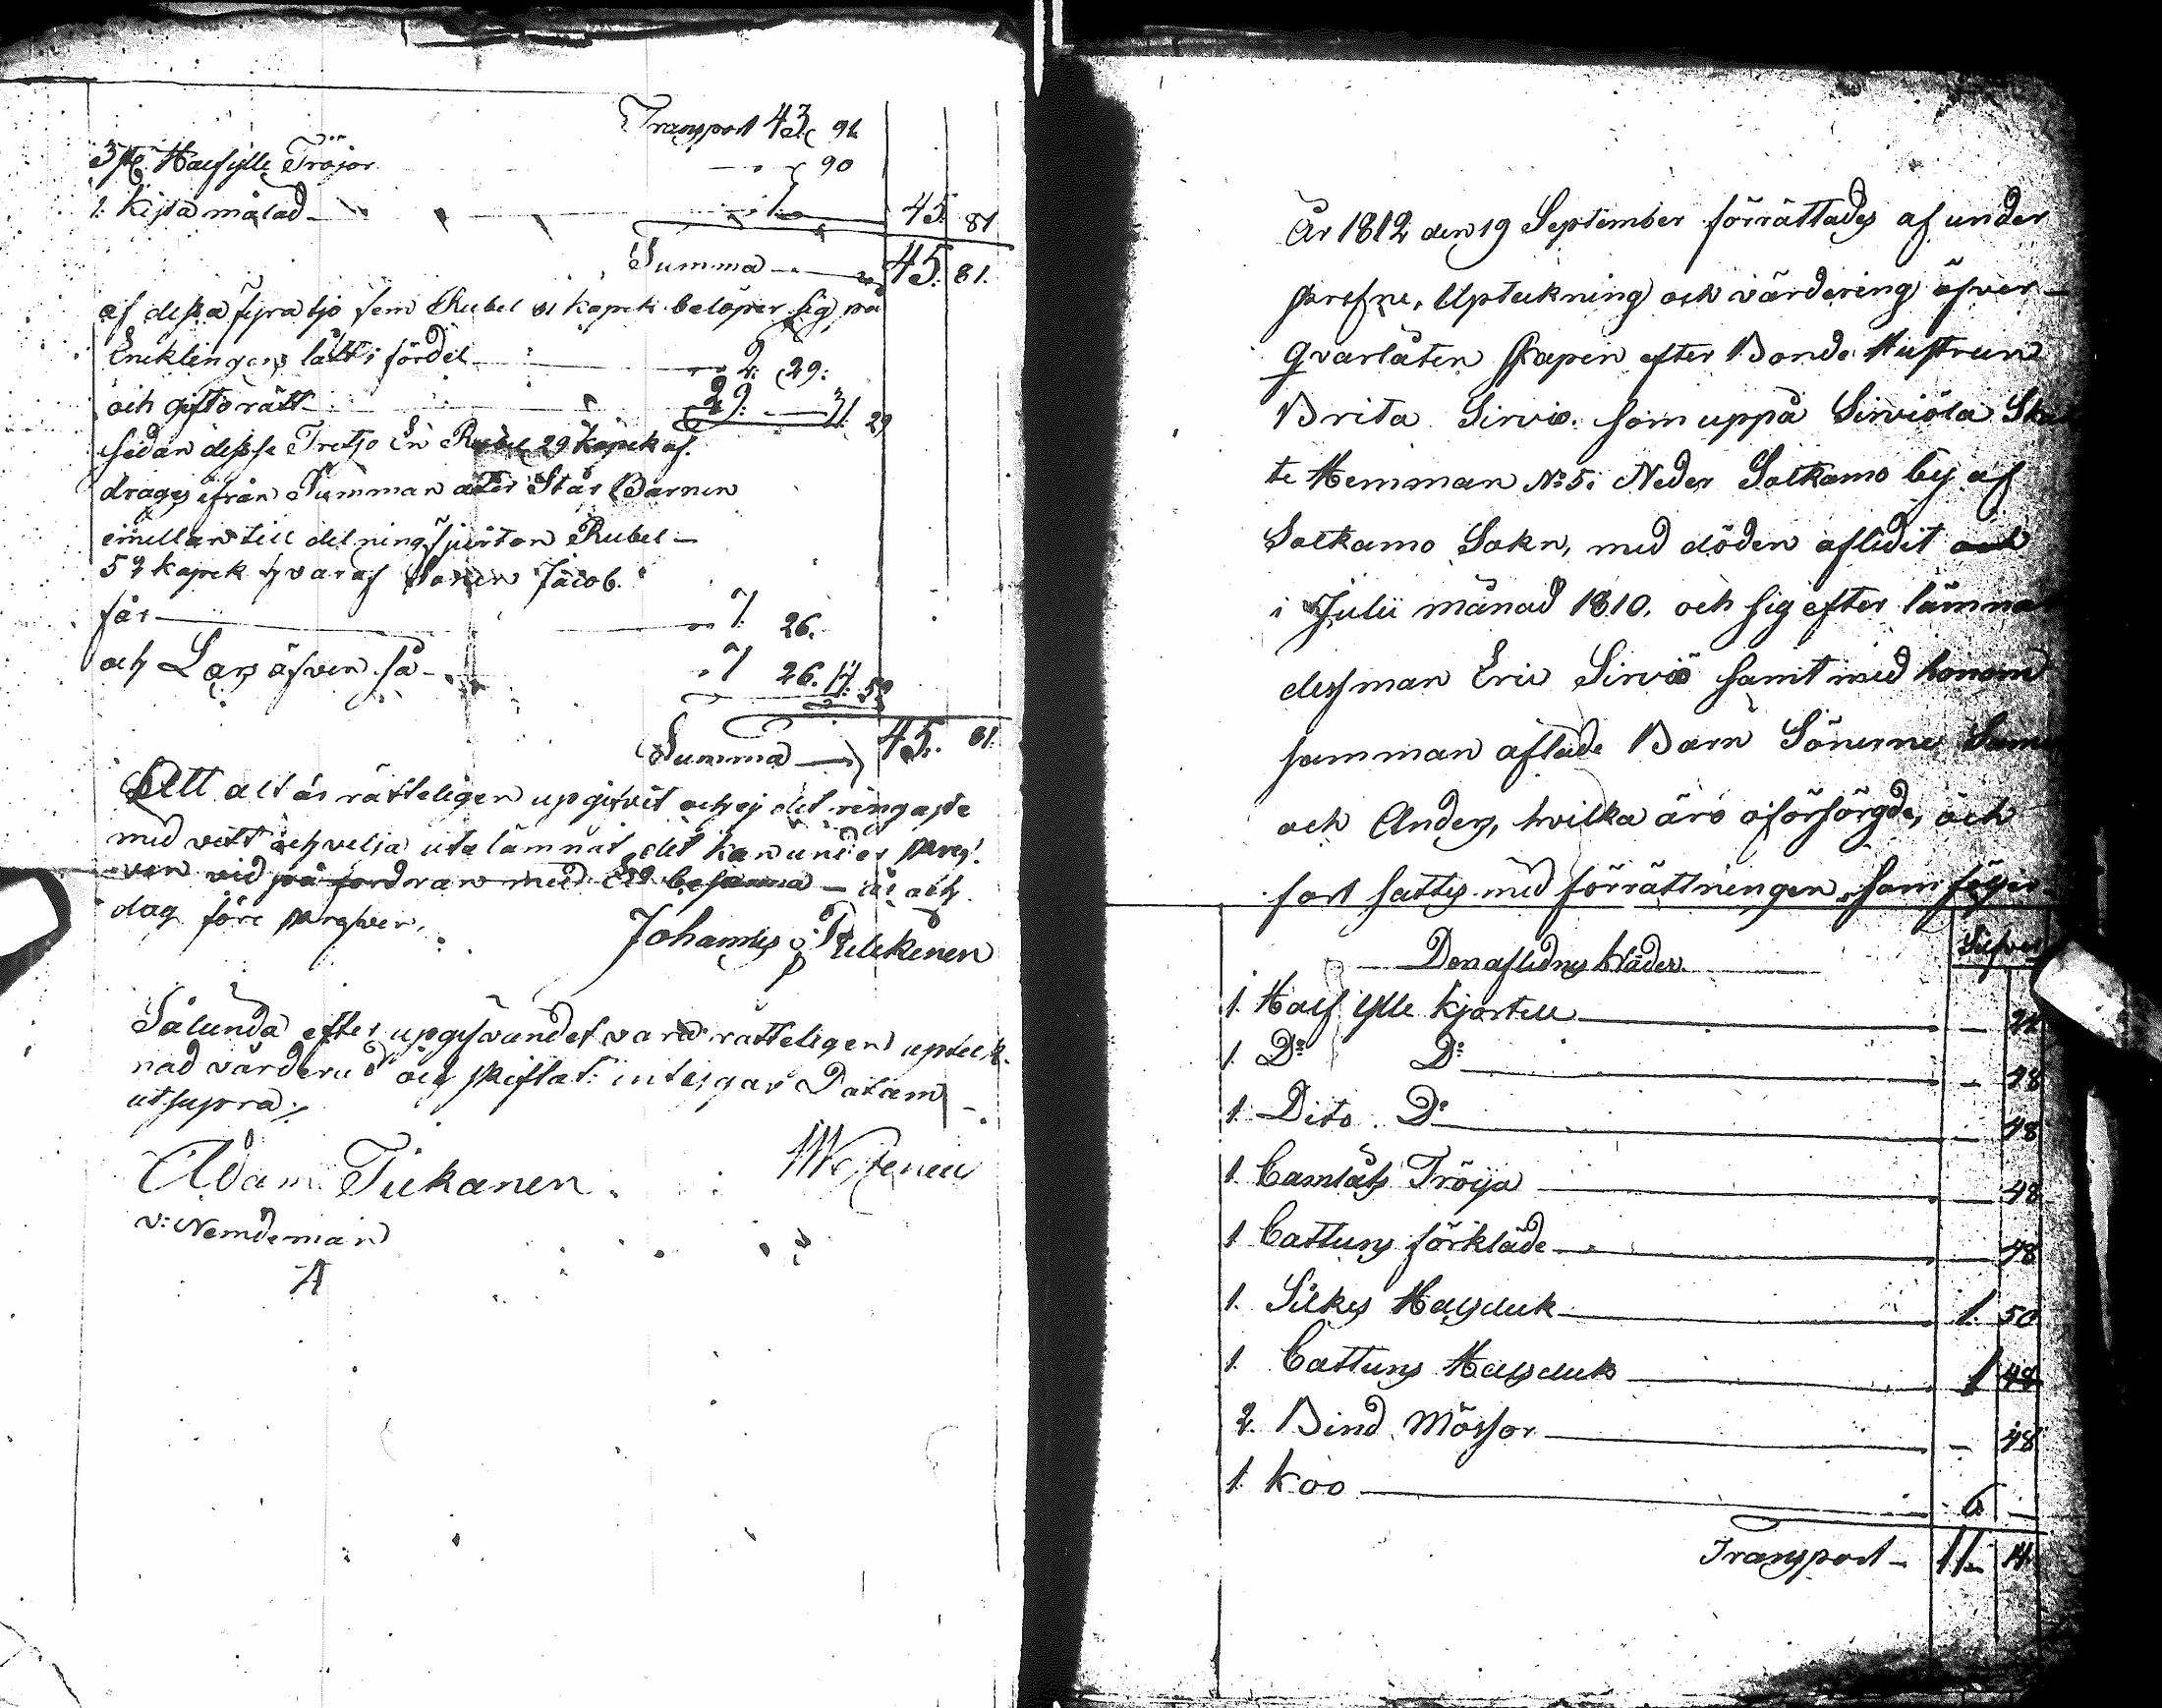 Transport 43. 91.
3 st. Half ylle Tröjor — 90
1. Kista målad — 1. — 45. 81
Summa — 45. 81.
af dessa fyratjo fem Rubel 81 kopek belöper sig på
Encklingens lått i fördel — 2. 29.
och giftorätt — 29. — 31. 29
sedan desse Tretjo En Rubel 29 kopek af
drages ifrån Summan åter Står Barnen
emellan till delning fjorton Rubel
52 kopek hvaraf Sonen Jacob
får — 7. 26.
och Lars äfven så — 7 26. 14. 52
Summa — 45. 81.
Att alt är rätteligen upgifvit och ej det ringaste
med vett och velja utelämnat, det kan under skref-
ven vid på fordran med Ed besanna — år och
dag före skrefven.
Johannes Pulckinen
Sålunda efter upgifvandet varit rätteligen upteck-
nad värderad och skiftat: intygar Datum
ut supra
Adam Tickanen
v: Nemdeman
År 1812 den 19 September förrättades af under
skrefne, Upteckning och värdering öfver
qvarlåten skapen efter Bonde Hustrun
Brita Sirviö. som uppå Sirviölä Ska
te Hemman No 5 i Neder Sotkamo by af
Sotkamo Sokn, med döden aflidit
i Julii månad 1810. och sig efter lämna
dess man Eric Sirviö samt med honom
samman aflade Barn Sönerne
och Anders, hvilka äro oförsörgde, och
fort sattes med förrättningen som följer
Silfver
Den aflidnes kläder.
1. Half ylle Kjortell —
1. Do Do — 48
1. Dito Do — 48
1. Camlåts Tröija — 48
1 Cattuns förkläde — 48
1. Silkes Halsduk — 1. 50
1. Cattuns Halsduk — 1 48
2. Bind Mössor — 48
1. Koo — 6 —
Transport — 11. 14.